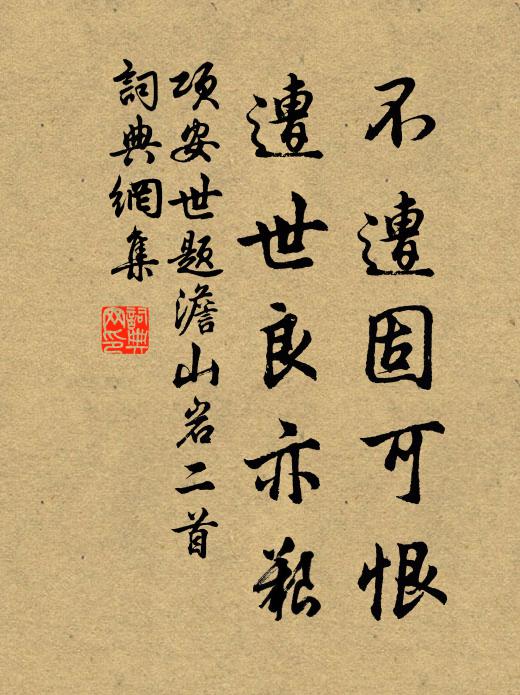 不遭固可恨
遭世良亦艱
項安世題澹山岩二首
詞典網集
詞典網印